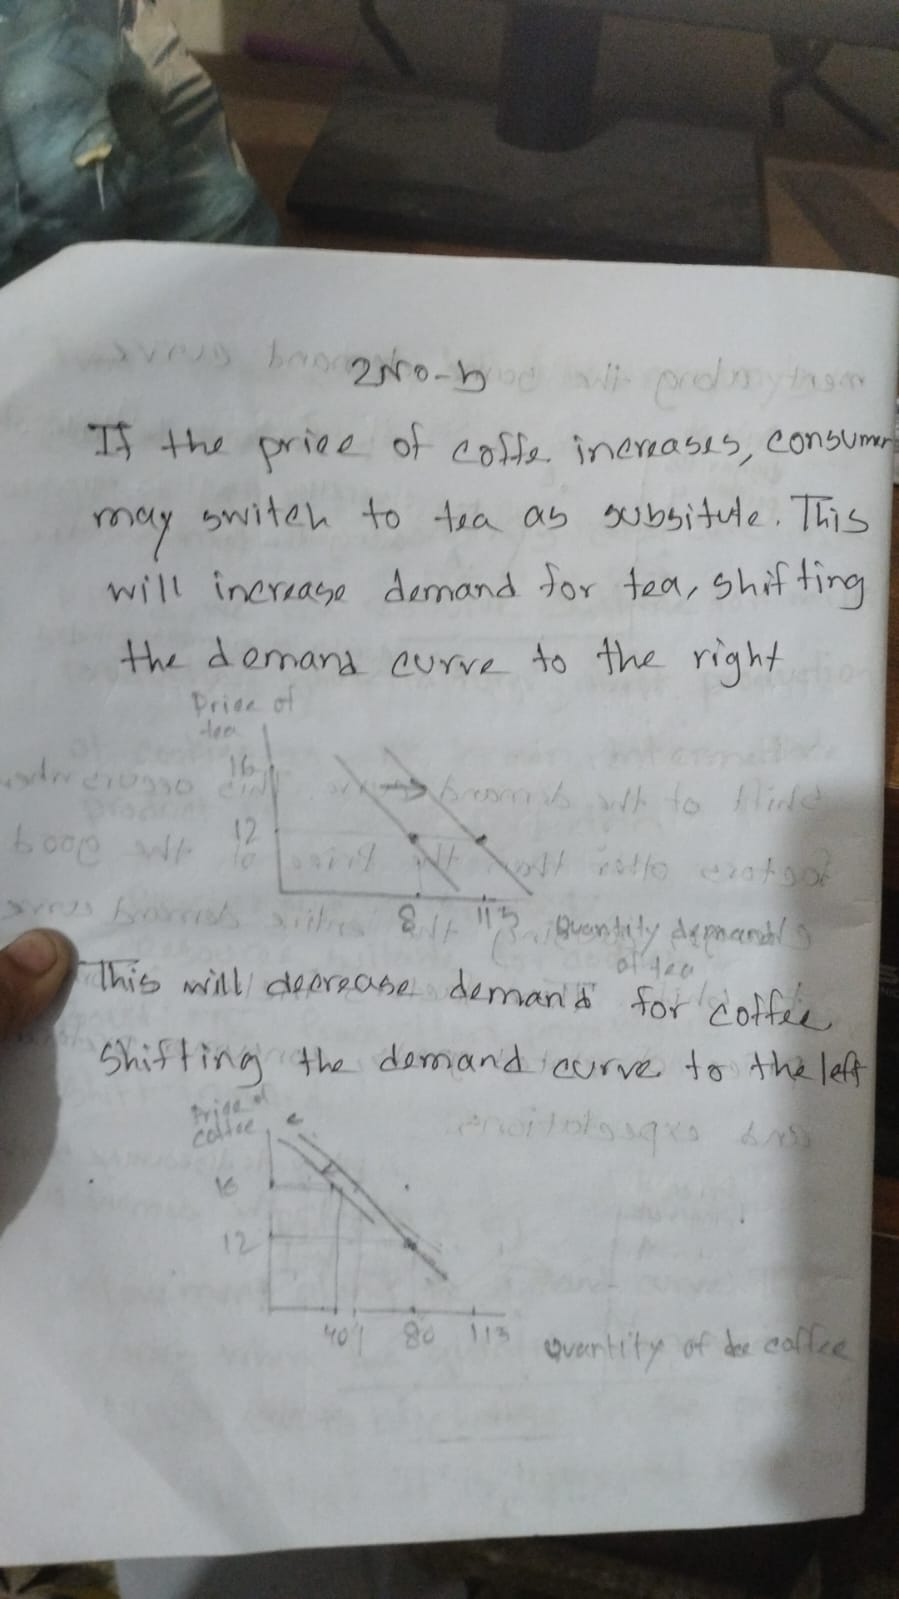 2No-b
If the price of coffe increases, consumer
may switch to tea as subsitute. This
will increase demand for tea, shifting
the demand curve to the right
Price of
tea
16
12
8 115 Quantity demanded
of tea
This will decrease demand for coffee
Shifting the demand curve to the left
Price of
coffee
16
12
40 80 115 Quantity of coffee